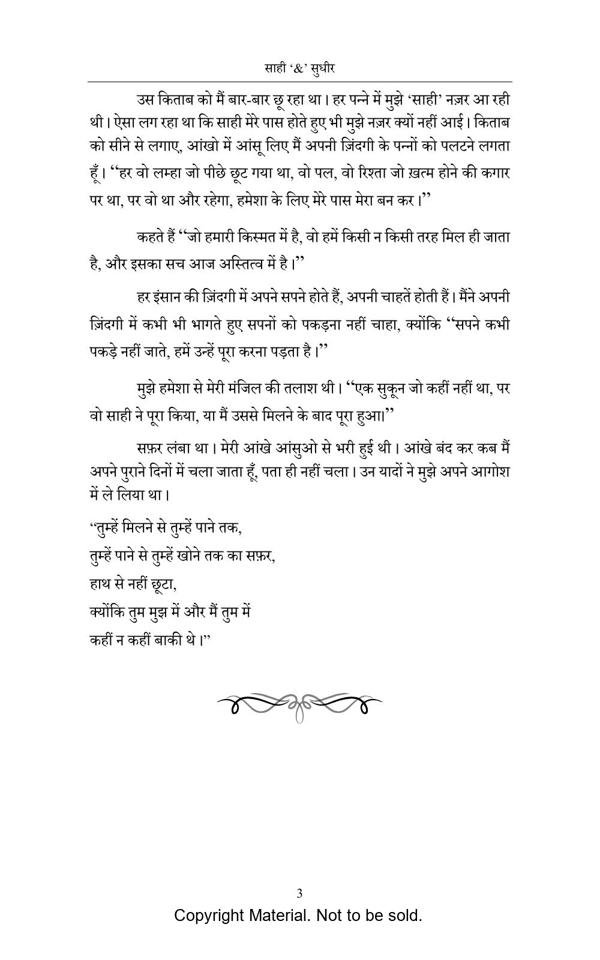 साही ‘&’ सुधीर
उस किताब को मैं बार-बार छू रहा था। हर पन्ने में मुझे ‘साही’ नज़र आ रही
थी। ऐसा लग रहा था कि साही मेरे पास होते हुए भी मुझे नज़र क्यों नहीं आई। किताब
को सीने से लगाए, आंखो में आंसू लिए मैं अपनी ज़िंदगी के पन्नों को पलटने लगता
हूँ। “हर वो लम्हा जो पीछे छूट गया था, वो पल, वो रिश्ता जो ख़त्म होने की कगार
पर था, पर वो था और रहेगा, हमेशा के लिए मेरे पास मेरा बन कर।”
कहते हैं “जो हमारी किस्मत में है, वो हमें किसी न किसी तरह मिल ही जाता
है, और इसका सच आज अस्तित्व में है।”
हर इंसान की ज़िंदगी में अपने सपने होते हैं, अपनी चाहतें होती हैं। मैंने अपनी
ज़िंदगी में कभी भी भागते हुए सपनों को पकड़ना नहीं चाहा, क्योंकि “सपने कभी
पकड़े नहीं जाते, हमें उन्हें पूरा करना पड़ता है।”
मुझे हमेशा से मेरी मंजिल की तलाश थी। “एक सुकून जो कहीं नहीं था, पर
वो साही ने पूरा किया, या मैं उससे मिलने के बाद पूरा हुआ।”
सफ़र लंबा था। मेरी आंखे आंसुओ से भरी हुई थी। आंखे बंद कर कब मैं
अपने पुराने दिनों में चला जाता हूँ, पता ही नहीं चला। उन यादों ने मुझे अपने आगोश
में ले लिया था।
“तुम्हें मिलने से तुम्हें पाने तक,
तुम्हें पाने से तुम्हें खोने तक का सफ़र,
हाथ से नहीं छूटा,
क्योंकि तुम मुझ में और मैं तुम में
कहीं न कहीं बाकी थे।”
3
Copyright Material. Not to be sold.